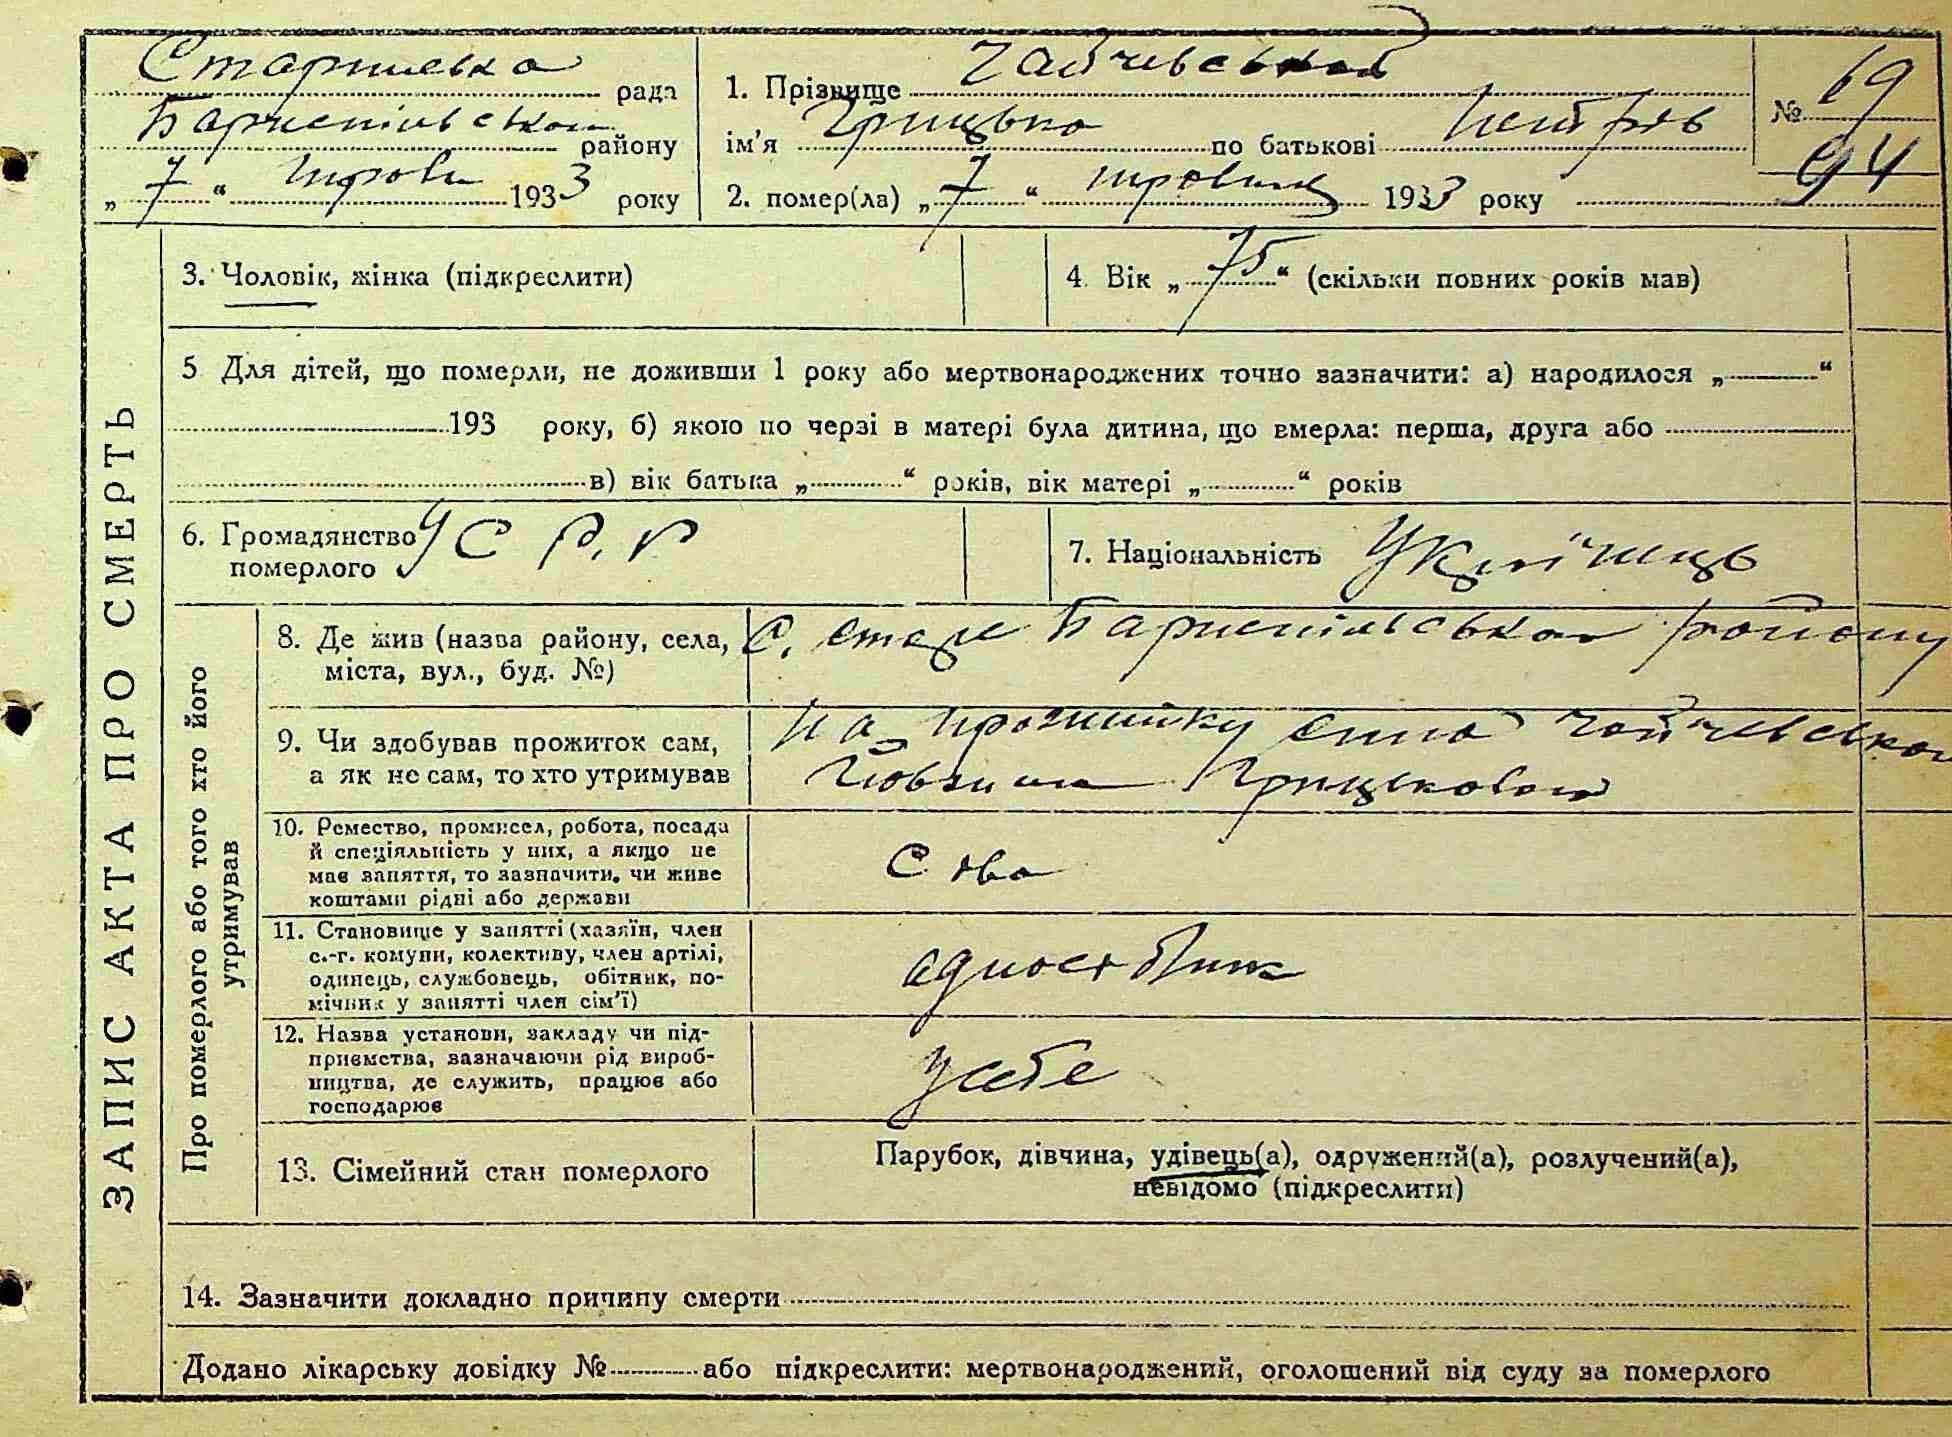 Старинська рада
Бариспільського району
„ 7 “ травня 1933 року
1. Прізвище Чайчевський
ім'я Грицько по батькові Петров
2. помер(ла) „ 7 “ травня 1933 року
№ 69
94
ЗАПИС АКТА ПРО СМЕРТЬ
3. Чоловік, жінка (підкреслити)
4. Вік „ 75 “ (скільки повних років мав)
5 Для дітей, що померли, не доживши 1 року або мертвонароджених точно зазначити: а) народилося „ “
193 року, б) якою по черзі в матері була дитина, що вмерла: перша, друга або
в) вік батька „ “ років, вік матері „ “ років
6. Громадянство
померлого УСРР
7. Національність Українець
Про померлого або того хто його
утримував
8. Де жив (назва району, села,
міста, вул., буд. №)
С. Старе Бариспільского району
9. Чи здобував прожиток сам,
а як не сам, то хто утримував
На сина Чайчевського
Грицькович
10. Ремество, промисел, робота, посада
й спеціяльність у них, а якщо не
має заняття, то зазначити, чи живе
коштами рідні або держави
11. Становище у занятті (хазяїн, член
с.-г. комуни, колективу, член артілі,
одинець, службовець, обітник, по-
мічник у занятті член сім'ї)
12. Назва установи, закладу чи під-
приємства, зазначаючи рід вироб-
ництва, де служить, працює або
господарює
у себе
13. Сімейний стан померлого
Парубок, дівчина, удівець(а), одружений(а), розлучений(а),
невідомо (підкреслити)
14. Зазначити докладно причину смерти
Додано лікарську довідку № або підкреслити: мертвонароджений, оголошений від суду за померлого